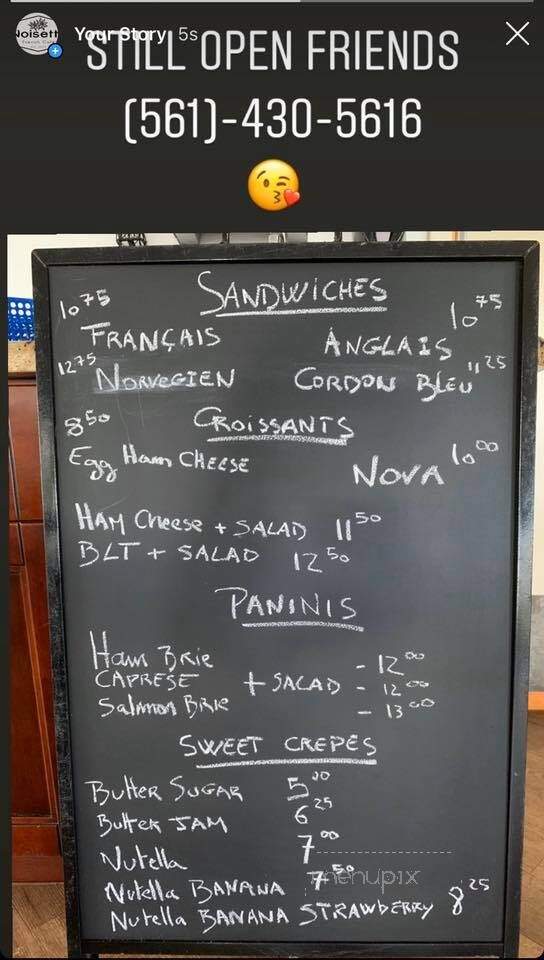 Noisette
Your Story 5s
STILL OPEN FRIENDS
(561)-430-5616
SANDWICHES
10 75 10 75
FRANÇAIS ANGLAIS
12 75 NORVEGIEN CORDON BLEU 11 25
CROISSANTS
8 50
Egg Ham CHEESE NOVA 10 00
HAM Cheese + SALAD 11 50
BLT + SALAD 12 50
PANINIS
Ham BRIE - 12 00
CAPRESE + SALAD - 12 00
Salmon BRIE - 13 00
SWEET CREPES
Butter SUGAR 5 00
Butter JAM 6 25
Nutella 7 00
menupix
Nutella BANANA 7 50
Nutella BANANA STRAWBERRY 8 25